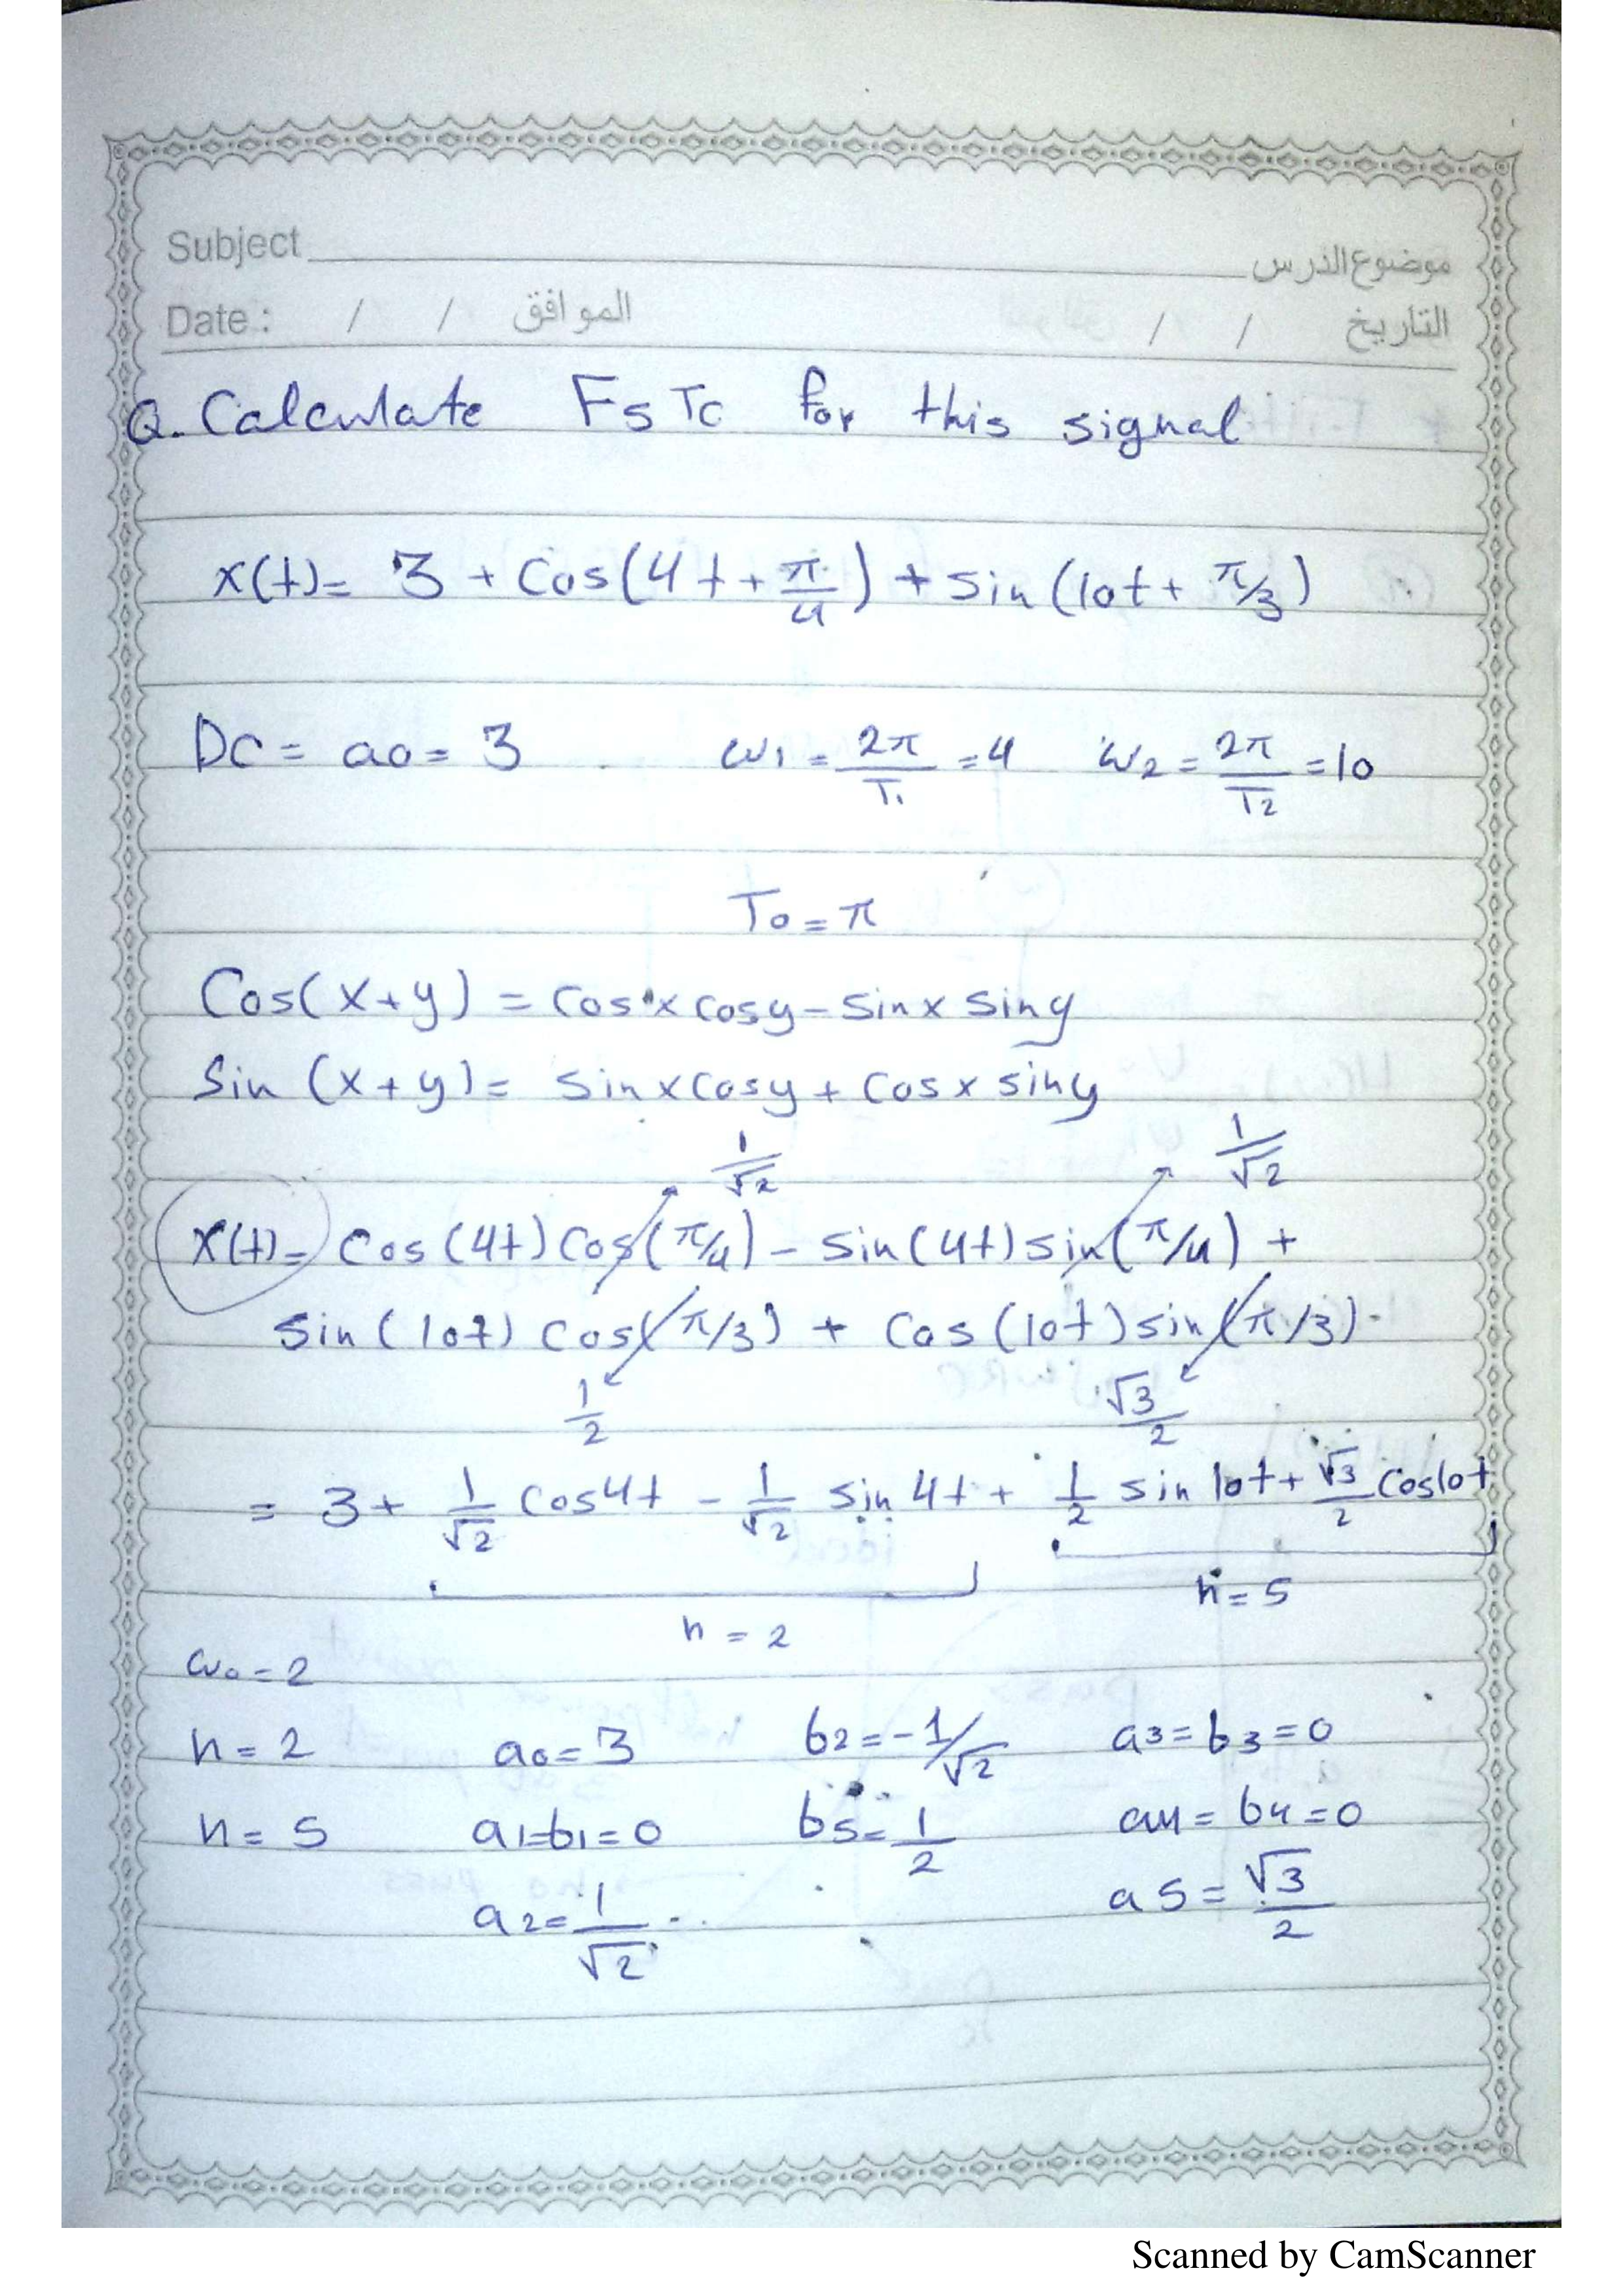 Subject موضوع الدرس
Date : / / الموافق / / التاريخ
Q. Calculate FsTc for this signal
x(t)= 3 + Cos(4t + π/4) + sin(10t + π/3)
DC = a0 = 3 ω1 = 2π/T1 = 4 ω2 = 2π/T2 = 10
T0 = π
Cos(x+y) = cos x cosy - sinx siny
Sin (x+y) = sinx cosy + cosx siny
1/√2 1/√2
x(t)= cos(4t) cos(π/4) - sin(4t) sin(π/4) +
sin(10t) cos(π/3) + cos(10t) sin(π/3)
1/2 √3/2
= 3 + 1/√2 cos4t - 1/√2 sin 4t + 1/2 sin 10t + √3/2 cos10t
n = 2 n = 5
ω0 = 2
n = 2 a0 = 3 b2 = -1/√2 a3 = b3 = 0
n = 5 a1=b1=0 b5 = 1/2 a4 = b4 = 0
a2 = 1/√2 a5 = √3/2
Scanned by CamScanner